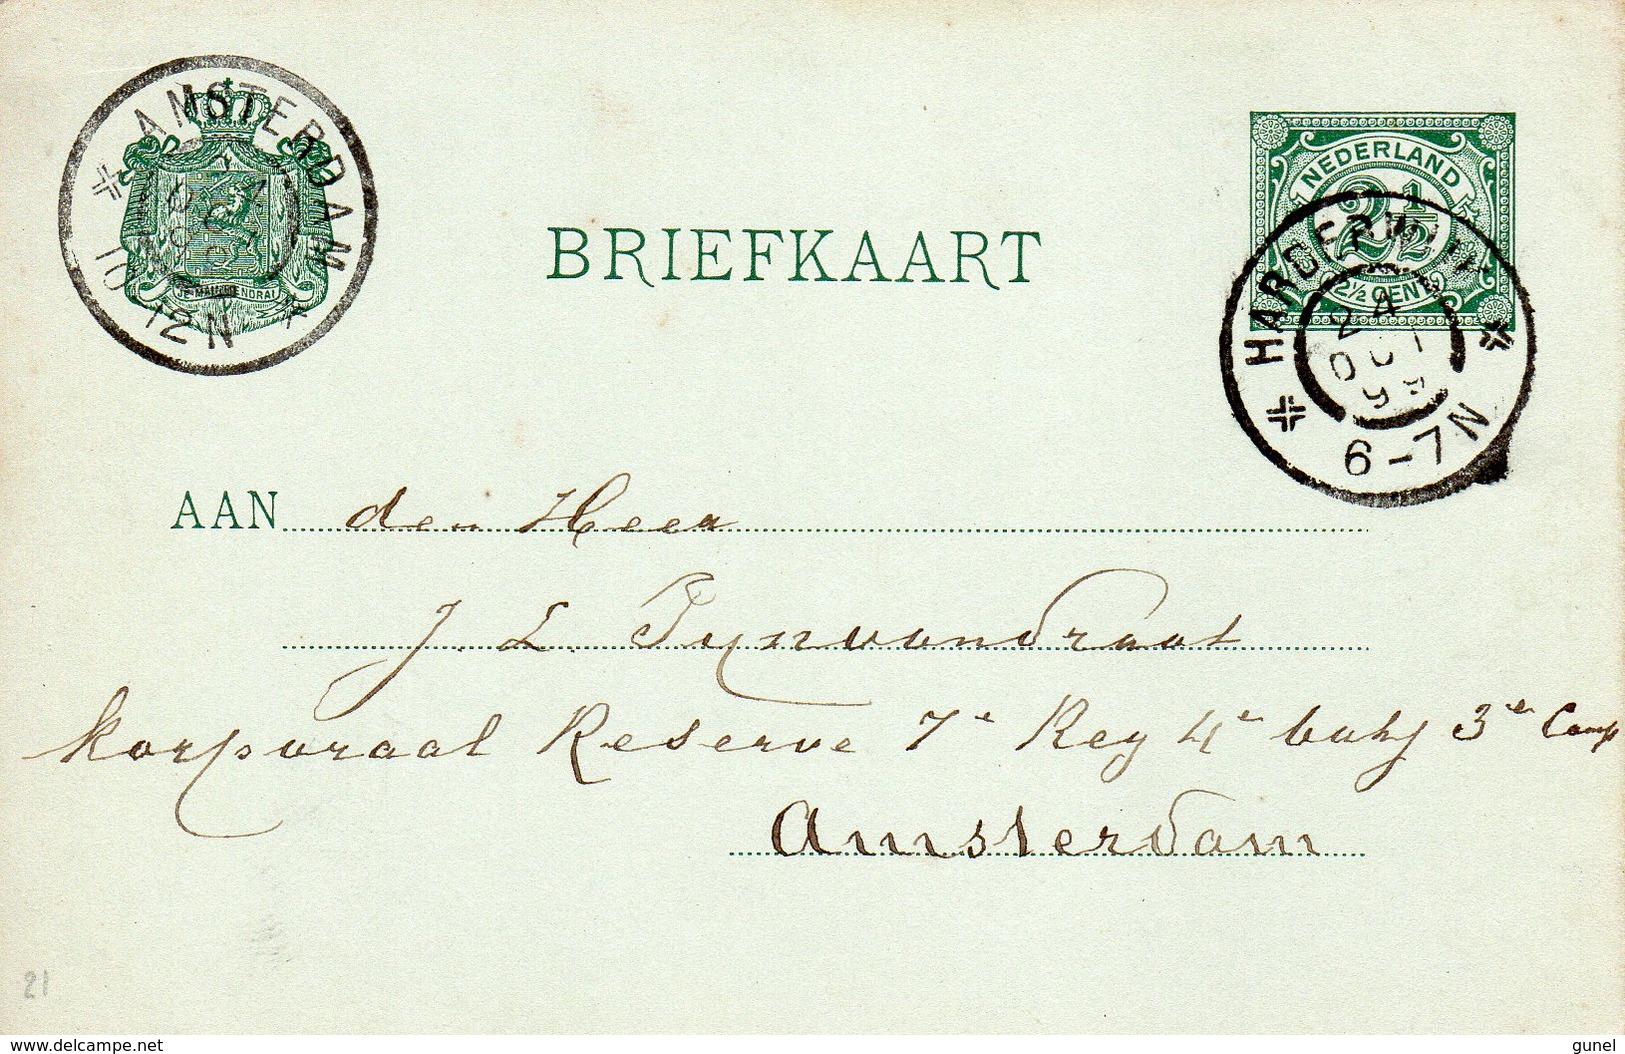 AMSTERDAM
10-12N
JE MAINTIENDRAI
BRIEFKAART
NEDERLAND
2½
2½ CENT
HARDERWIJK
24
09
6-7N
AAN den Heer
J. L. Pynvandraat
korporaal Reserve 7e Reg 4e batlj 3er Comp
Amsterdam
21
www.delcampe.net
gunel